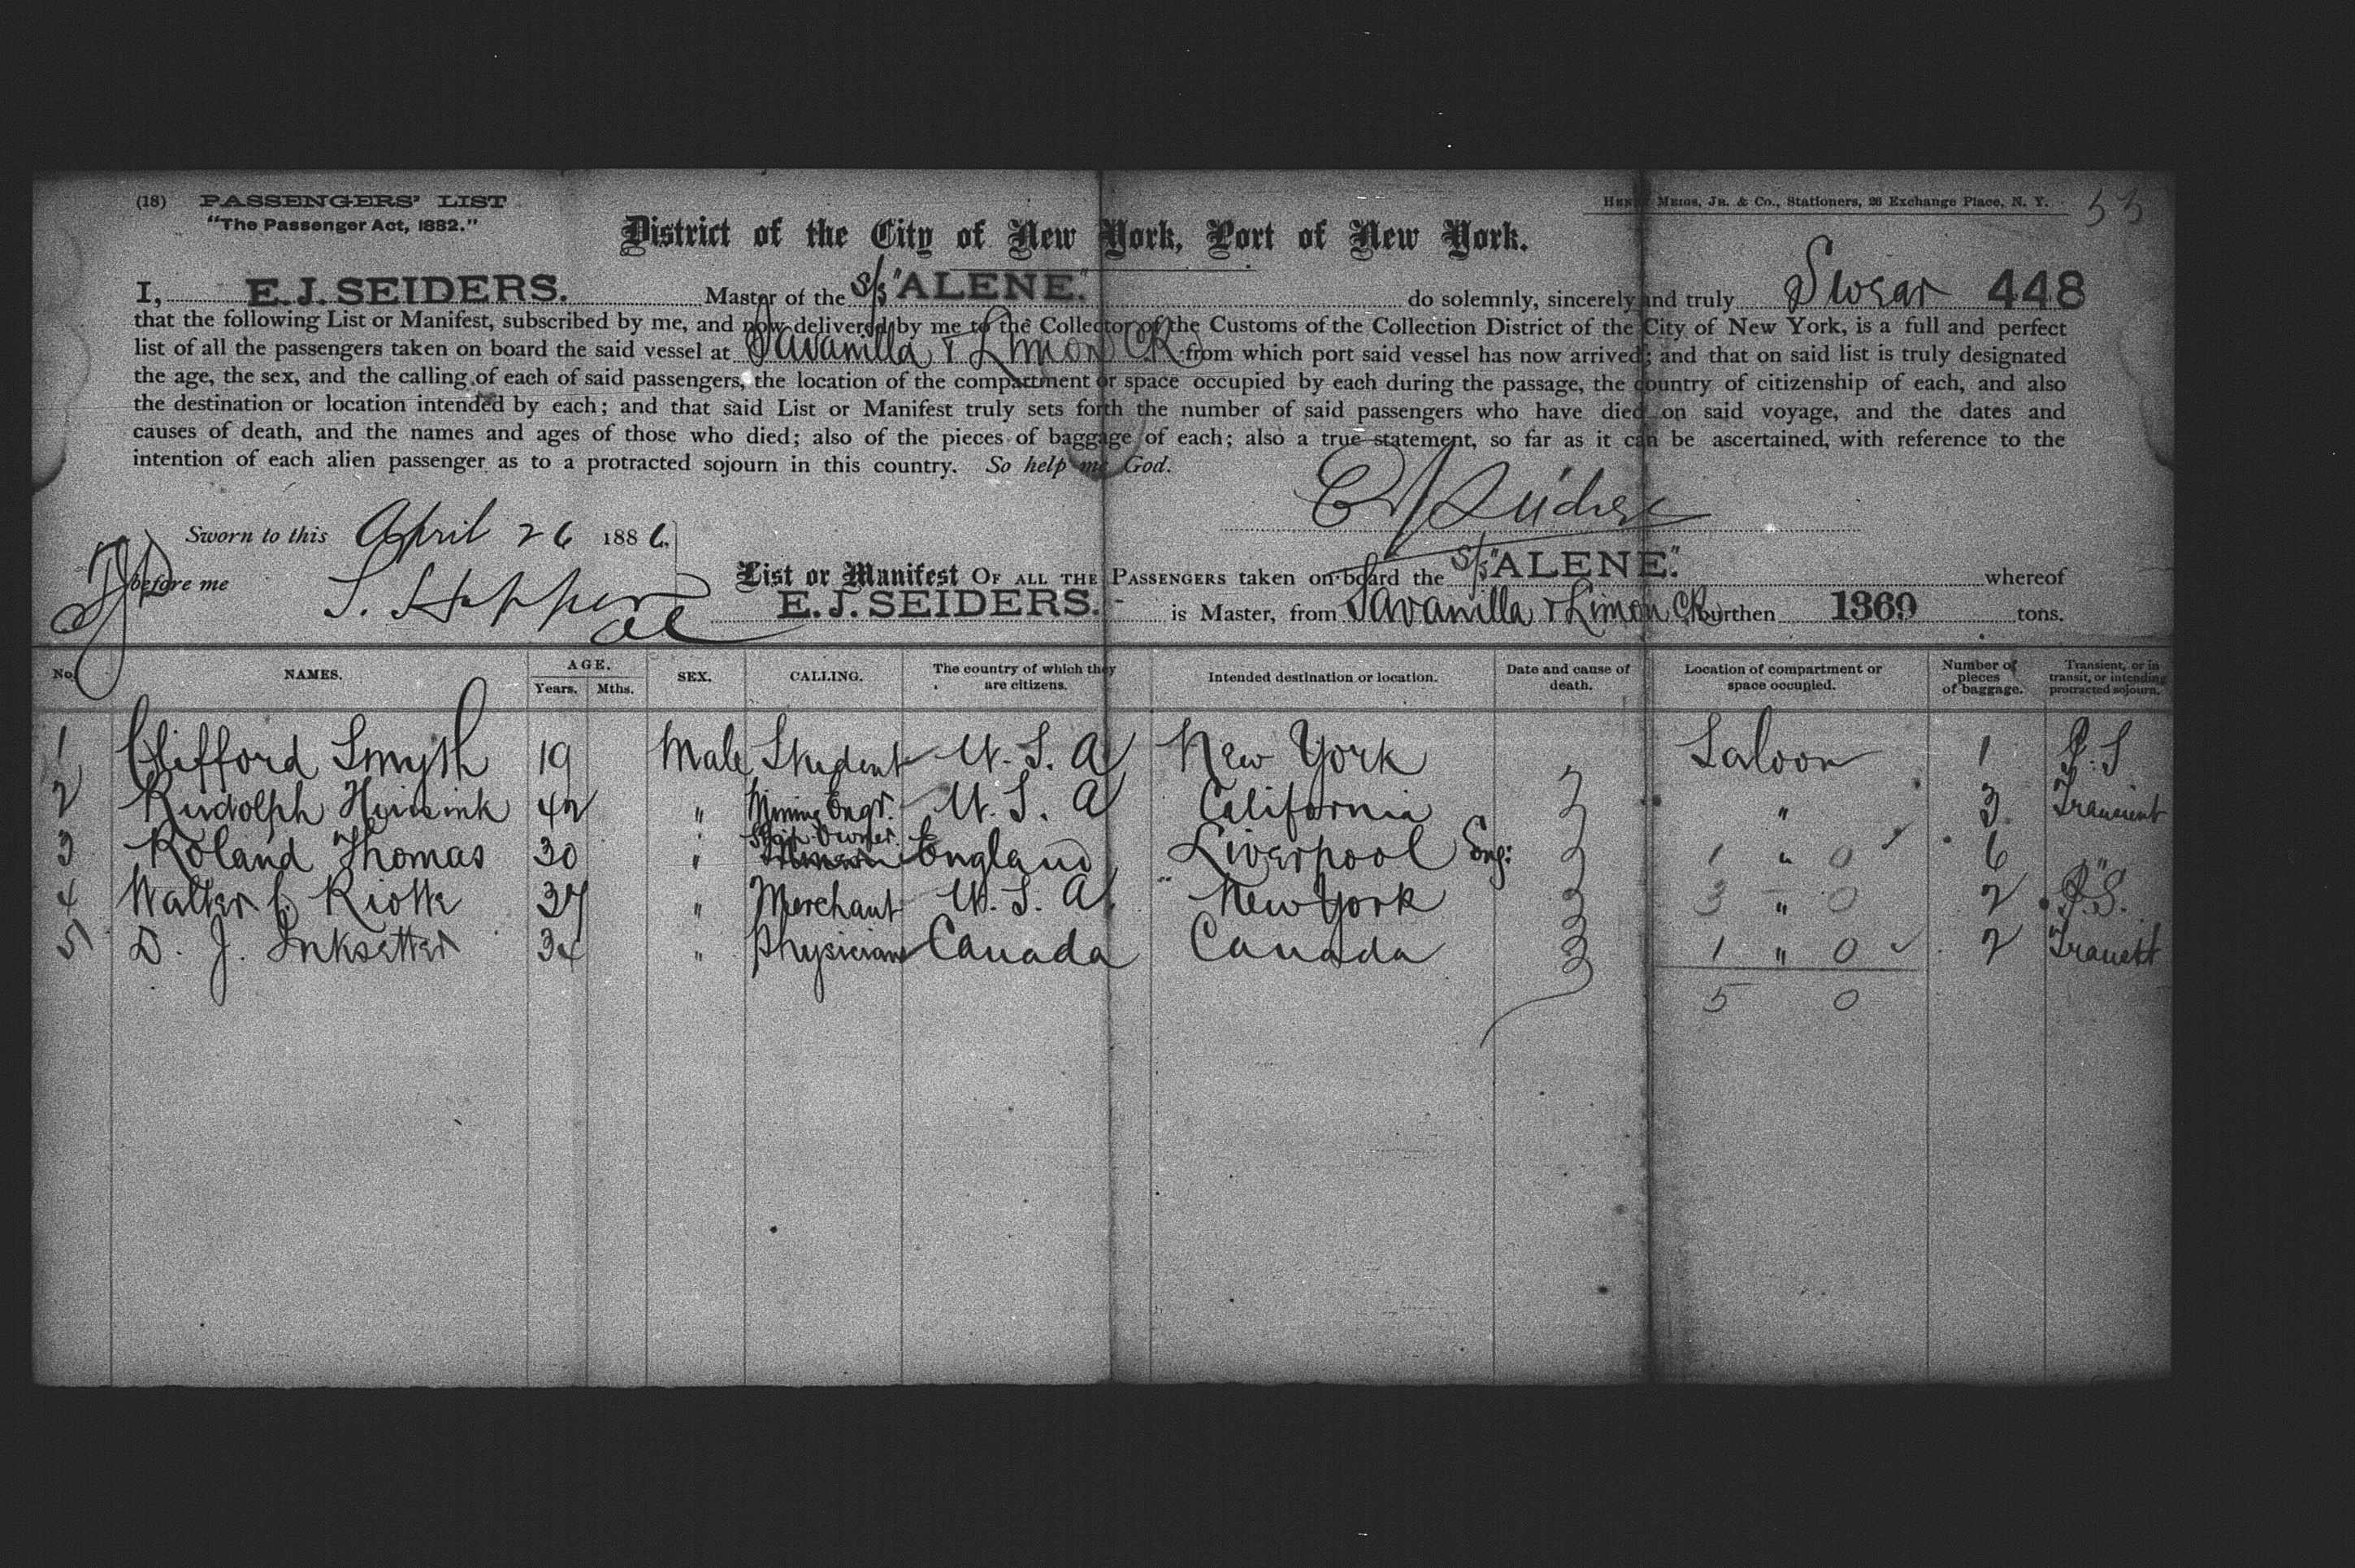 (18) PASSENGERS' LIST
"The Passenger Act, 1882."
HENRY MEIGS, JR. & CO., Stationers, 26 Exchange Place, N. Y. 53
District of the City of New York, Port of New York.
I, E. J. SEIDERS. Master of the S/s "ALENE." do solemnly, sincerely and truly Swear 448
that the following List or Manifest, subscribed by me, and now delivered by me to the Collector of the Customs of the Collection District of the City of New York, is a full and perfect
list of all the passengers taken on board the said vessel at Savanilla & Limon CR from which port said vessel has now arrived; and that on said list is truly designated
the age, the sex, and the calling of each of said passengers, the location of the compartment or space occupied by each during the passage, the country of citizenship of each, and also
the destination or location intended by each; and that said List or Manifest truly sets forth the number of said passengers who have died on said voyage, and the dates and
causes of death, and the names and ages of those who died; also of the pieces of baggage of each; also a true statement, so far as it can be ascertained, with reference to the
intention of each alien passenger as to a protracted sojourn in this country. So help me God.
E J Seiders
Sworn to this April 26 1886.
before me
List or Manifest OF ALL THE PASSENGERS taken on board the S/s "ALENE." whereof
E. J. SEIDERS. is Master, from Savanilla & Limon CR burthen 1369 tons.
No. NAMES. AGE. Years. Mths. SEX. CALLING. The country of which they are citizens. Intended destination or location. Date and cause of death. Location of compartment or space occupied. Number of pieces of baggage. Transient, or in transit, or intending protracted sojourn.
1 Clifford Smyth 19 Male Student U. S. A New York Saloon 1 P. S
2 Rudolph 42 " Mining Engr. U. S. A California " 3 Transient
3 Roland Thomas 30 " Ship Owner. England Liverpool Eng: 1 " 0 6 "
4 Walter C. Riotte 37 " Merchant U. S. A. New York 3 " 0 2 P. S.
5 D. J. Inksetter 34 " Physician Canada Canada 1 " 0 2 Transt
5 0